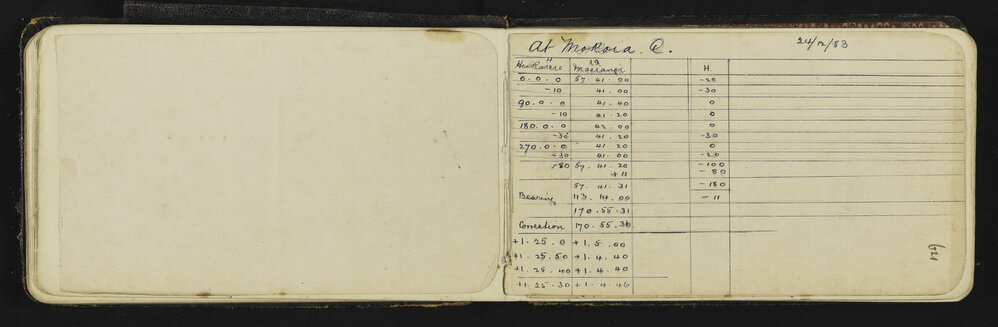 At Mokoia. C. 24/12/83
H
0.0.0 57.41.00 -20
-10 41.00 -30
90.0.0 41.40 0
-10 41.20 0
180.0.0 42.00 0
-30 41.20 -30
270.0.0 41.20 0
-30 41.00 -20
-80 57.41.20 -100
+11 -80
57.41.31 -180
Bearing 113.14.00 -11
170.55.31
Correction 170.55.36
+1.25.0 +1.5.00
+1.25.50 +1.4.40
+1.25.40 +1.4.40
+1.25.30 +1.4.46